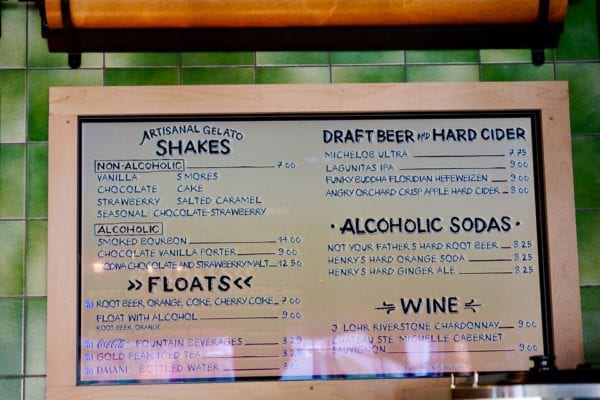 ARTISANAL GELATO
SHAKES
NON-ALCOHOLIC 7.00
VANILLA S'MORES
CHOCOLATE CAKE
STRAWBERRY SALTED CARAMEL
SEASONAL: CHOCOLATE-STRAWBERRY
ALCOHOLIC
SMOKED BOURBON 14.00
CHOCOLATE VANILLA PORTER 9.00
GODIVA CHOCOLATE AND STRAWBERRY MALT 12.50
»FLOATS«
ROOT BEER, ORANGE, COKE, CHERRY COKE 7.00
FLOAT WITH ALCOHOL 9.00
ROOT BEER, ORANGE
Coca-Cola FOUNTAIN BEVERAGES 3.29
GOLD PEAK ICED TEA 3.29
DASANI BOTTLED WATER 3.00
DRAFT BEER AND HARD CIDER
MICHELOB ULTRA 7.75
LAGUNITAS IPA 9.00
FUNKY BUDDHA FLORIDIAN HEFEWEIZEN 9.00
ANGRY ORCHARD CRISP APPLE HARD CIDER 8.00
• ALCOHOLIC SODAS •
NOT YOUR FATHER'S HARD ROOT BEER 8.25
HENRY'S HARD ORANGE SODA 8.25
HENRY'S HARD GINGER ALE 8.25
WINE
J. LOHR RIVERSTONE CHARDONNAY 9.00
CHATEAU STE. MICHELLE CABERNET
SAUVIGNON 9.00